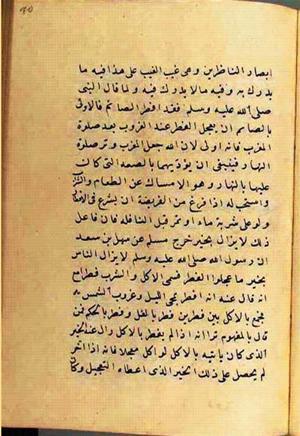 ابصار الناظرين وهى غيب الغيب على هذا فيه ما
يدرك به وفيه مالا يدرك فيه ولما قال النبى
صلى الله عليه وسلم فقد افطر الصائم فالاولى
بالصائم ان يعجل الفطر عند الغروب بعد صلوة
المغرب فانه اولى لان الله جعل المغرب وتر صلوة
النهار فينبغى ان يؤديها بالصفة التى كان
عليها بالنهار وهو الامساك عن الطعام والشرب
واستحب له اذا فرغ من الفريضة ان يشرع فى الافطار
ولو على شربة ماء او تمر قبل النافلة فان فاعل
ذلك لا يزال بخير خرج مسلم عن سهل بن سعد
ان رسول الله صلى الله عليه وسلم قال لا يزال الناس
بخير ما عجلوا الفطر فسمى الاكل والشرب فطرا مع
انه قال عنه انه افطر بمجئ الليل وغروب الشمس
فجمع بالاكل بين فطرين فطر بالفعل وفطر بالحكم فمن
قال بالمفهوم يرى انه اذا لم يفطر بالاكل زال عنه الخير
الذى كان ياتيه بالاكل لو اكل معجلا فانه اذا اخر
لم يحصل على ذلك الخير الذى اعطاه التعجيل وكان